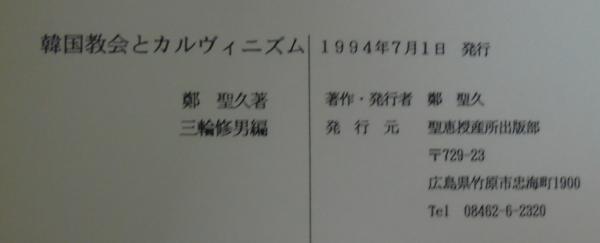 韓国教会とカルヴィニズム
鄭 聖久著
三輪修男編
1994年7月1日 発行
著作・発行者 鄭 聖久
発行元 聖恵授産所出版部
〒729-23
広島県竹原市忠海町1900
Tel 08462-6-2320